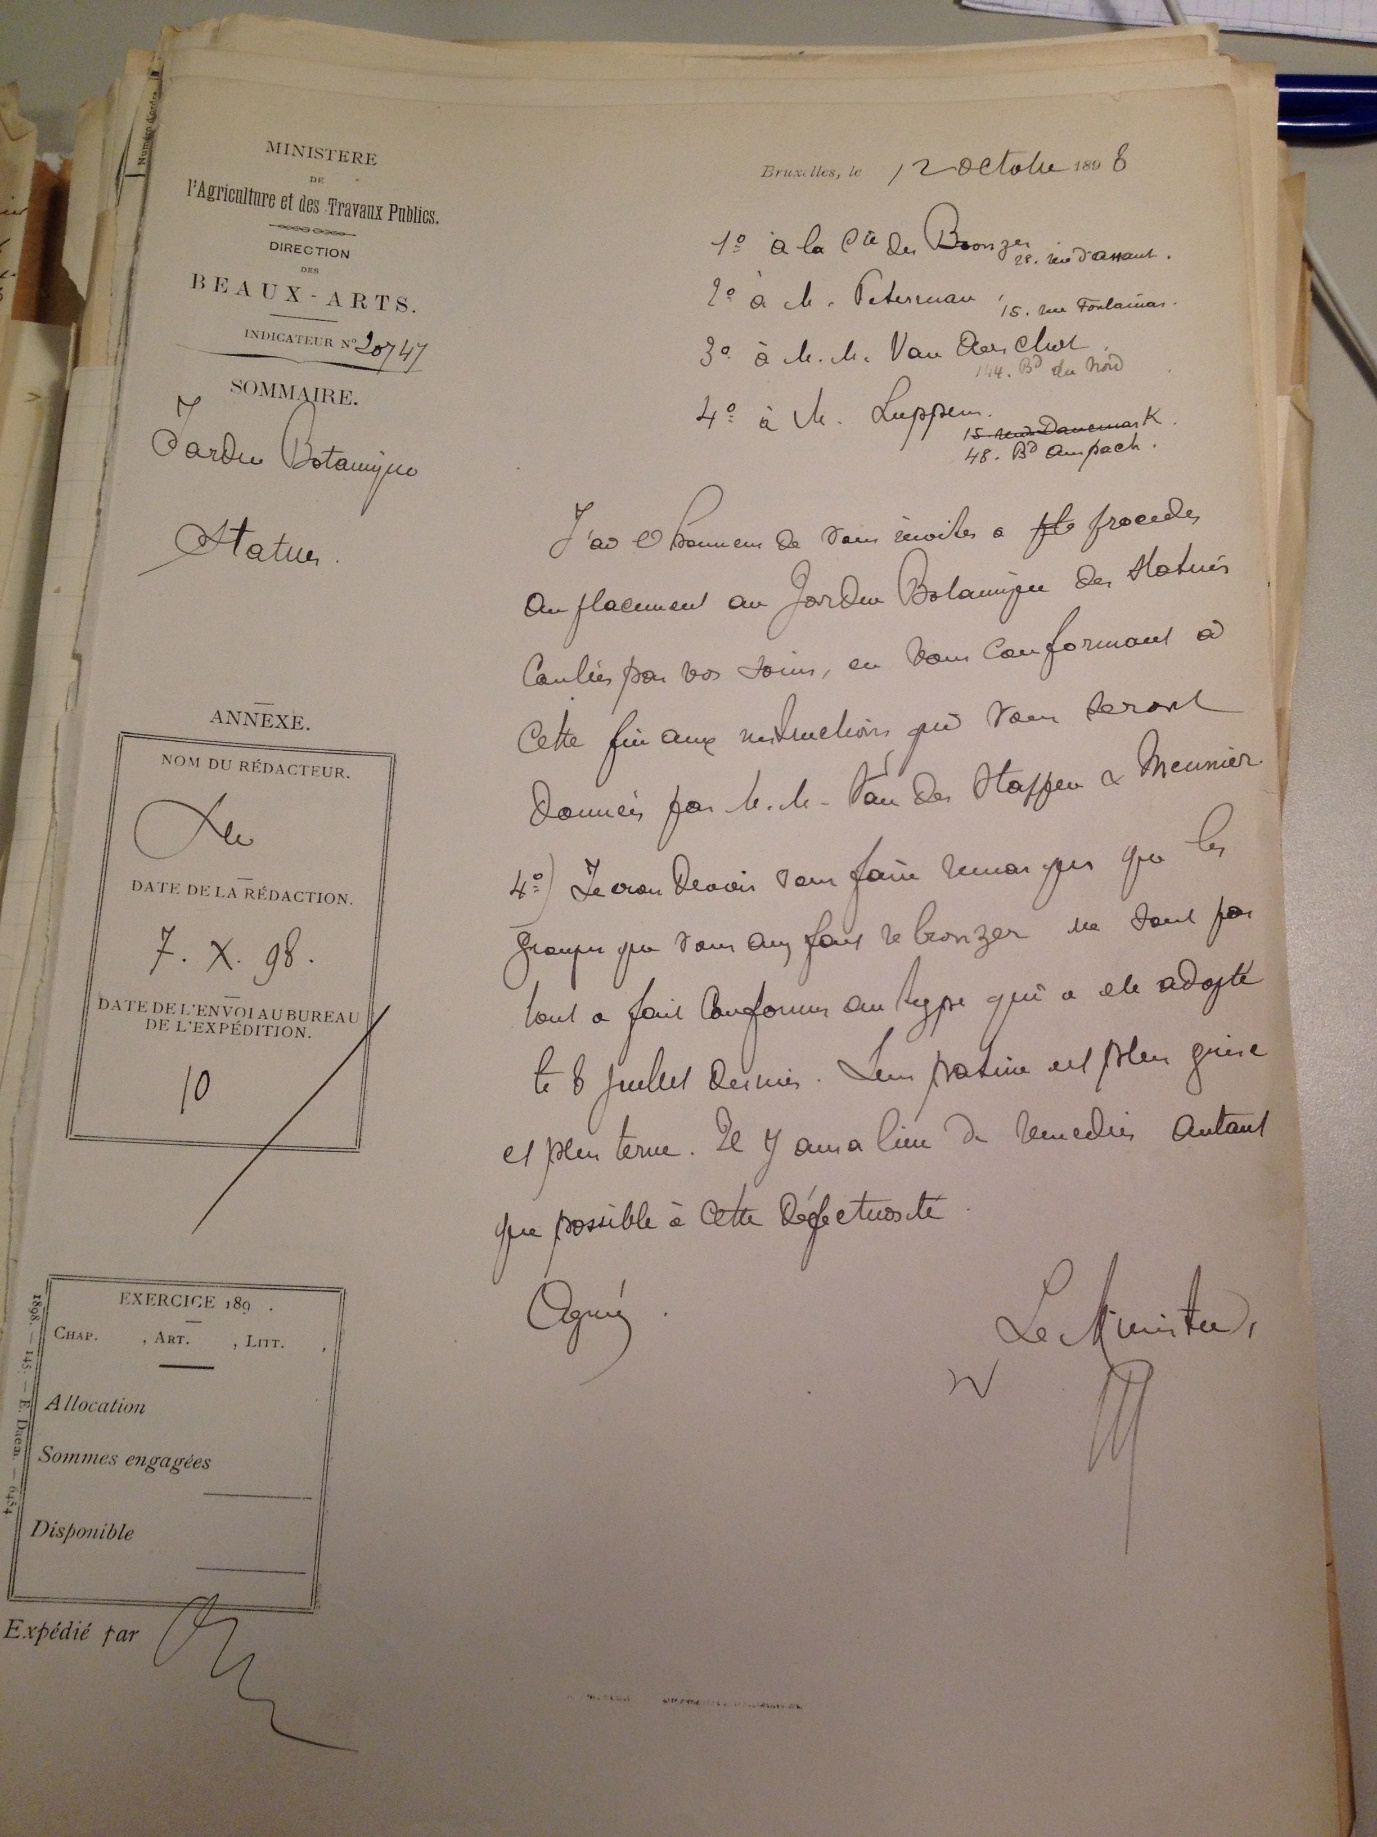 Numéro d'ordre
MINISTERE
DE
l'Agriculture et des Travaux Publics.
DIRECTION
DES
BEAUX-ARTS.
INDICATEUR N° 20747
SOMMAIRE.
Jardin Botanique
Statues.
ANNEXE.
NOM DU RÉDACTEUR.
DATE DE LA RÉDACTION.
7. X. 98.
DATE DE L'ENVOI AU BUREAU
DE L'EXPÉDITION.
10
EXERCICE 189 .
CHAP. , ART. , LITT. ,
Allocation
Sommes engagées
Disponible
1898. — 145. — E. Daem. — 6454
Expédié par
Bruxelles, le 12 octobre 1898
1° à la Cie des Bronzes
28. rue d'assaut.
2° à M. Peterman,
15. rue Fontainas.
3° à M.M. Van Aerschot.
144. Bd du Nord
4° à M. Luppens.
15. rue Danemark
48. Bd Anspach.
J'ai l'honneur de vous inviter a procéder
au placement au Jardin Botanique des statues
coulées par vos soins, en vous conformant à
cette fin aux instructions qui vous seront
données par M.M. Van der Stappen & Meunier
4°) Je crois devoir vous faire remarquer que les
groupes que vous avez fait rebronzer ne sont pas
tout a fait conformes au type qui a été adopté
le 8 juillet dernier. Leur patine est plus grise
et plus terne. Il y aura lieu de remedier autant
que possible à cette défectuosité.
Agréez.
Le Ministre,